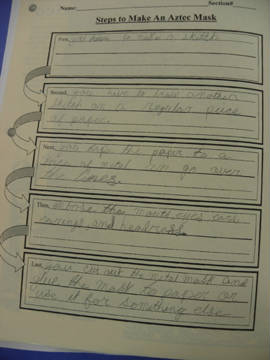 Name: Section#
Steps to Make An Aztec Mask
First, you have to make a sketch
Second, you have to draw another
sketch on a regular piece
of paper.
Next, you tape the paper to a
piece of metal go over
the lines.
Then, the mouth, eyes, ears
earings, and headress.
Last, you cut out the metal mask and
the mask to paper or
use it for something else.